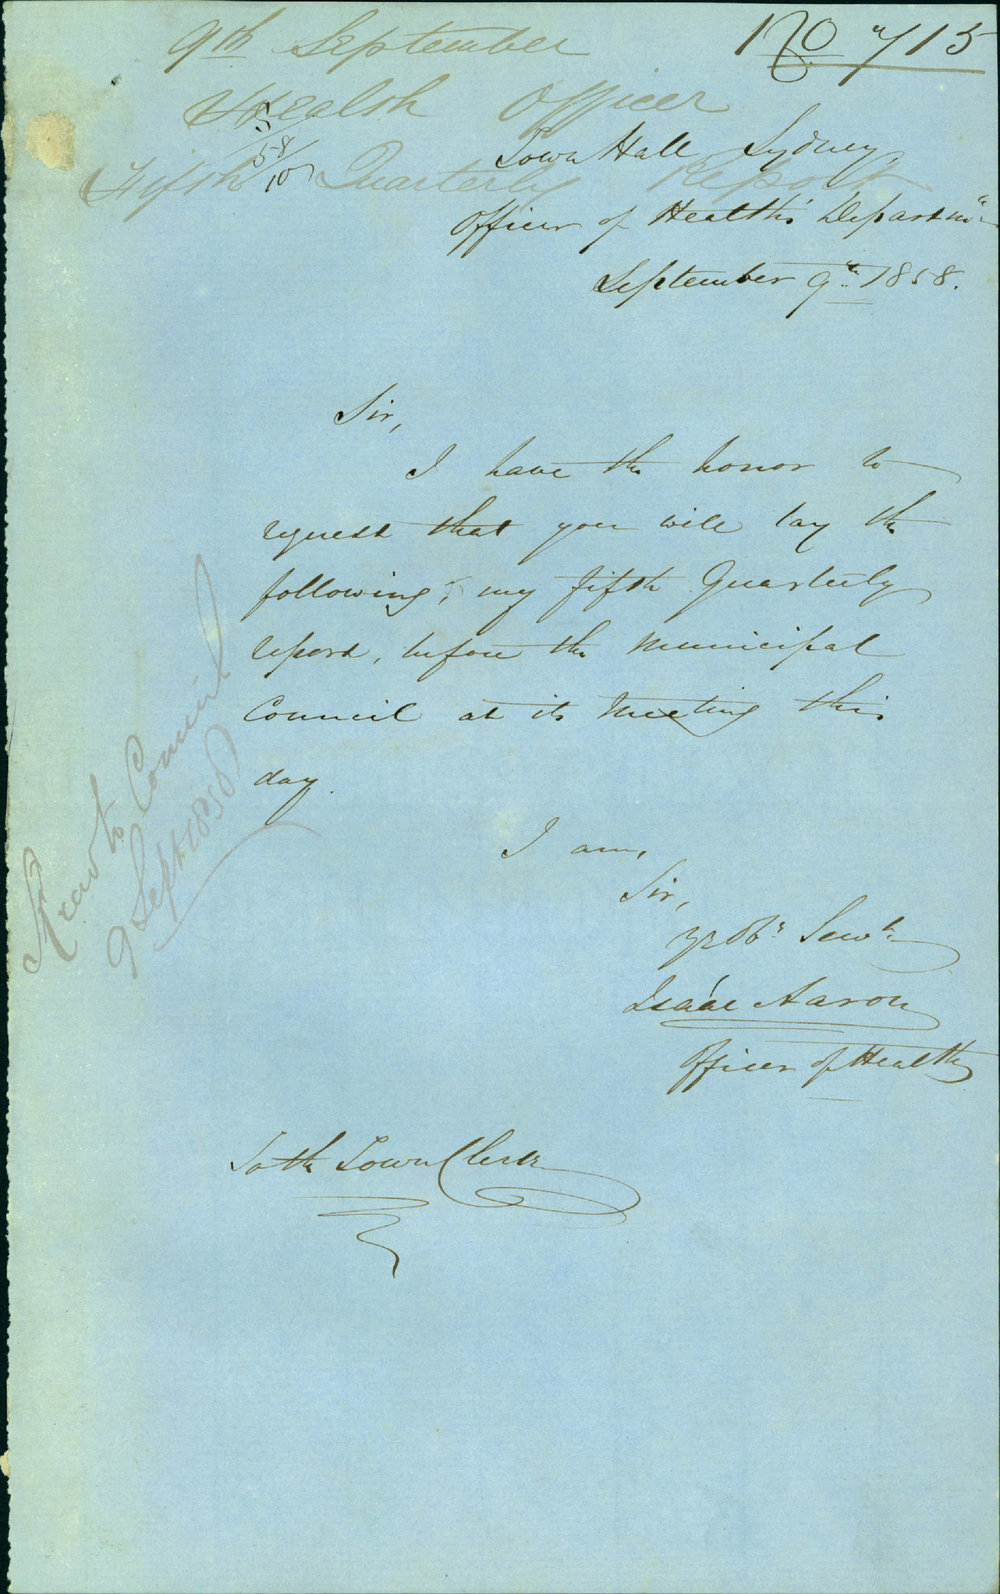 9th September
No 715
Health Officer
5/58/10
Town Hall Sydney,
Fifth Quarterly Report
Officer of Health's Departmt
September 9th 1858.
Sir,
I have the honor to
request that you will lay the
following, my fifth Quarterly
report, before the Municipal
Council at its Meeting this
day.
I am,
Sir,
Yr Obt Servt
Isaac Aaron
Officer of Health
To the Town Clerk
Read to Council
9 Sept 1858